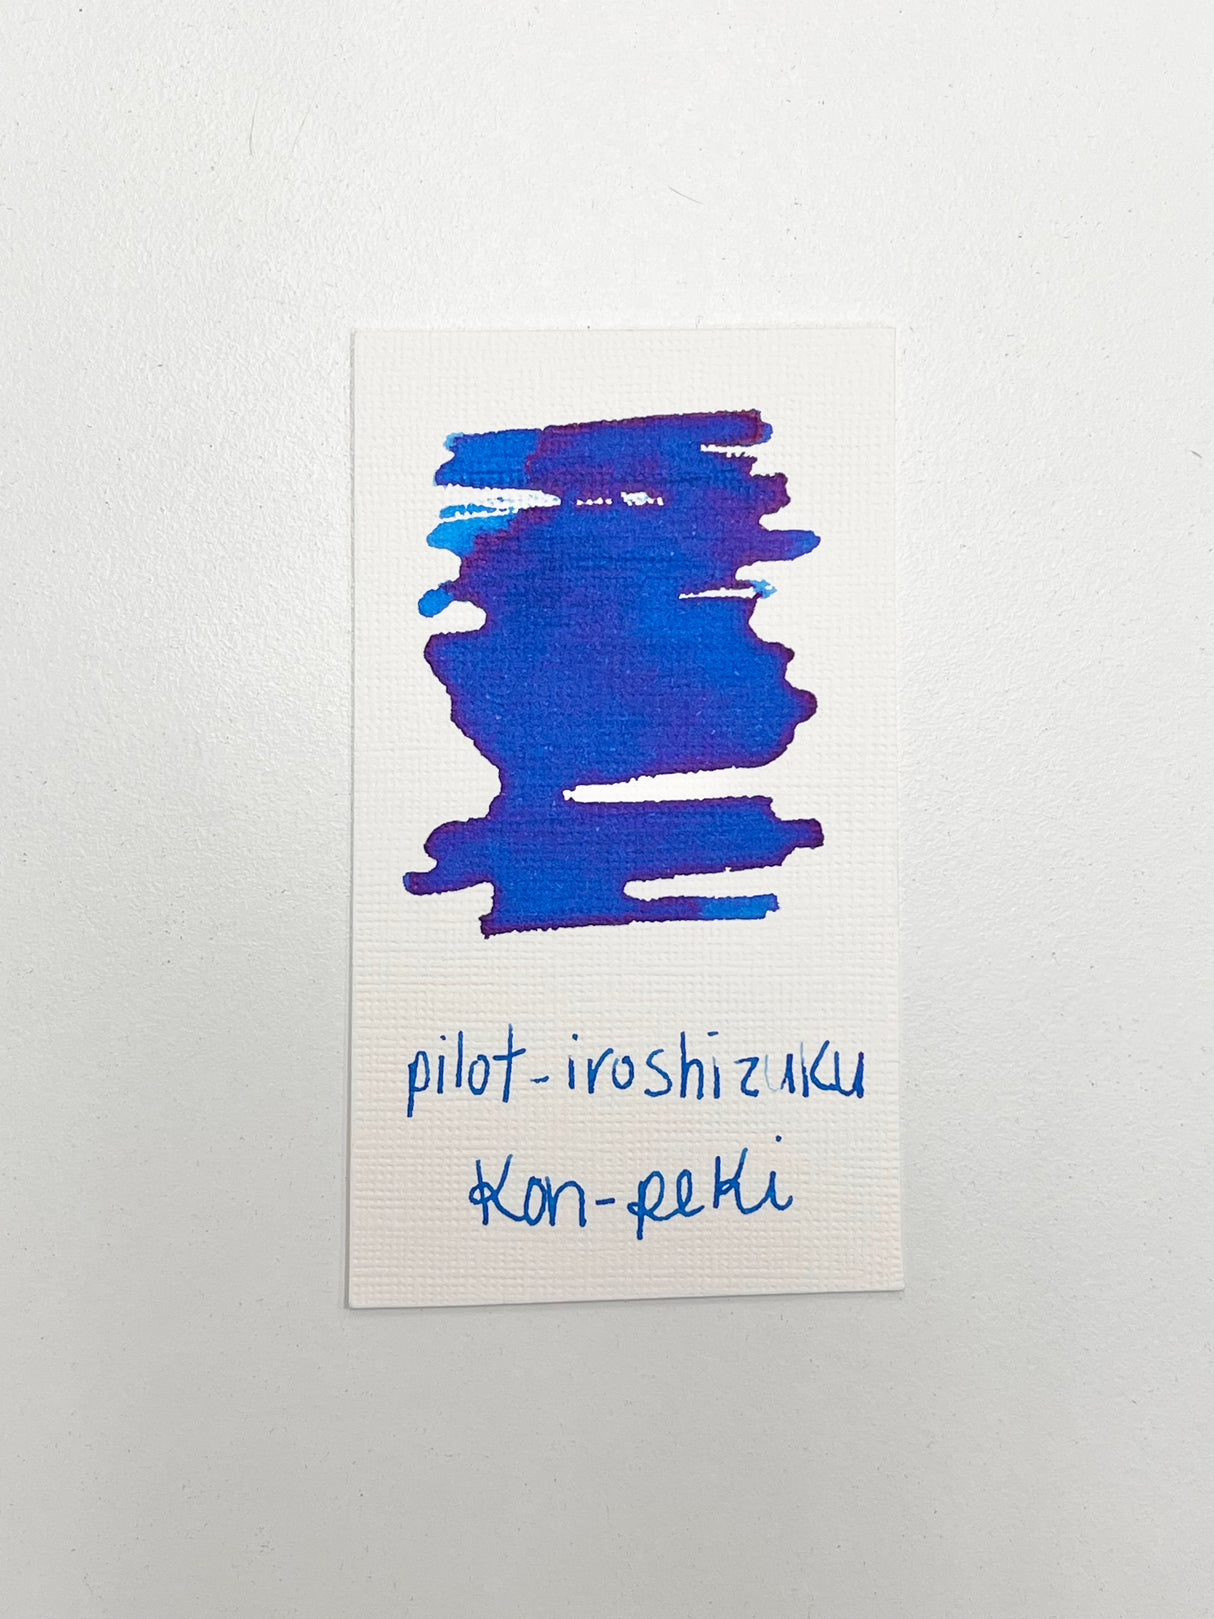 pilot-iroshizuku
Kon-peki